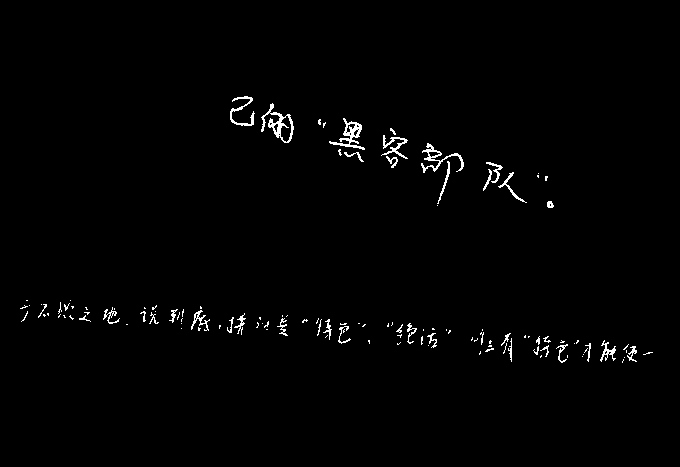 己的“黑客部队”。
于不败之地，说到底，拼的是“特色”、“绝活”唯有“特色”才能使一